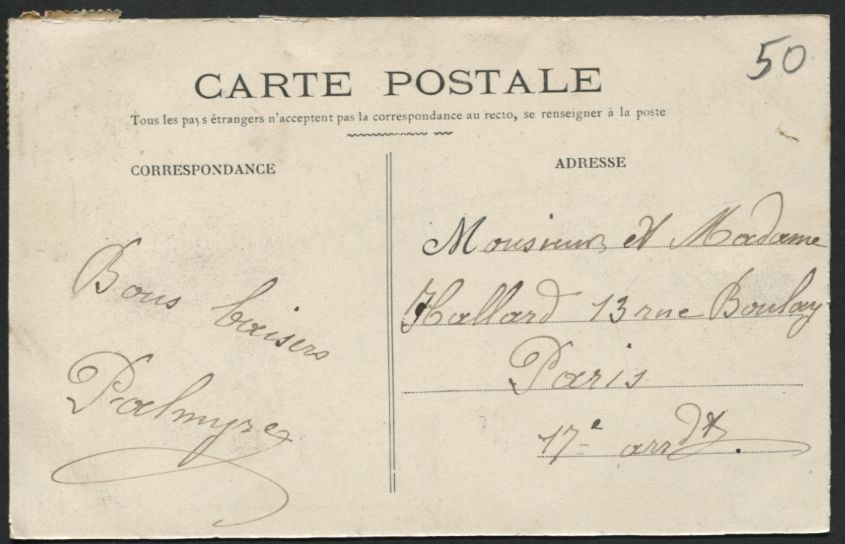 50
CARTE POSTALE
Tous les pays étrangers n'acceptent pas la correspondance au recto, se renseigner à la poste
CORRESPONDANCE
Bons baisers
Palmyre
ADRESSE
Monsieur et Madame
Hallard 13 rue Boulay
Paris
17e arrdt.